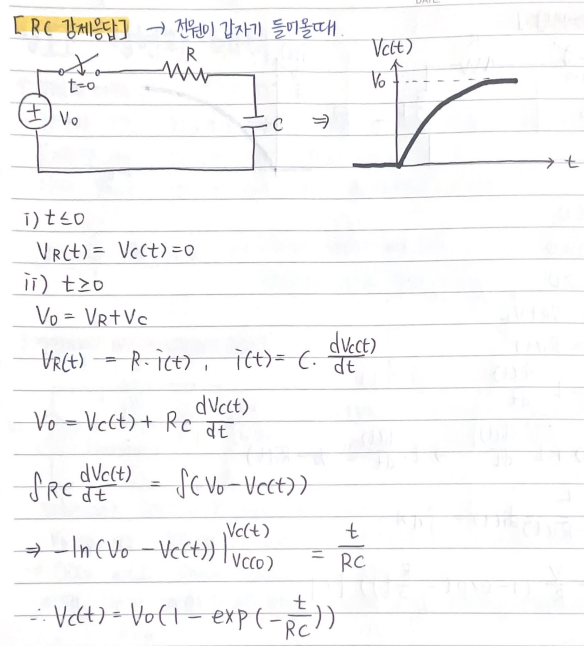 [RC 강제응답] → 전원이 갑자기 들어올때.
R
t=0
V₀
C
⇒
Vc(t)
V₀
t
i) t≤0
VR(t) = Vc(t) = 0
ii) t≥0
V₀ = VR+Vc
VR(t) = R·i(t), i(t) = C· dVc(t)/dt
V₀ = Vc(t) + RC dVc(t)/dt
∫RC dVc(t)/dt = ∫(V₀-Vc(t))
⇒ -ln(V₀ - Vc(t)) |Vc(0) Vc(t) = t/RC
∴ Vc(t) = V₀(1 - exp(-t/RC))